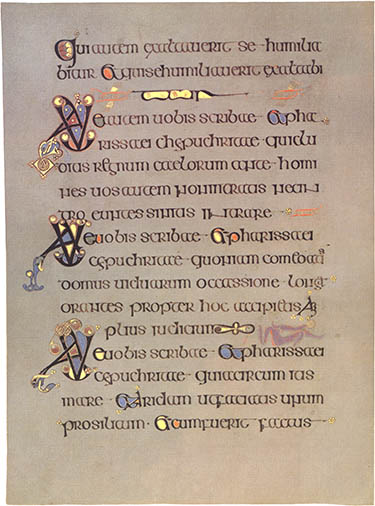 Qui autem exaltauerit se humilia
bitur Et qui se humiliauerit exaltabi
Vae autem uobis scribae et pha
rissaei chypuchritae qui clu
ditis regnum caelorum ante homi
nes uos autem non intratis nec in
tro euntes sinitis intrare
Vae uobis scribae et pharissaei
chypuchritae quoniam
domus uiduarum occassione longa
orantes propter hoc accipietis am
plius iudicium
Vae uobis scribae et pharissaei
chypuchritae qui circum itis
mare et aridam ut faciatis unum
prosilitum et cum fuerit factus